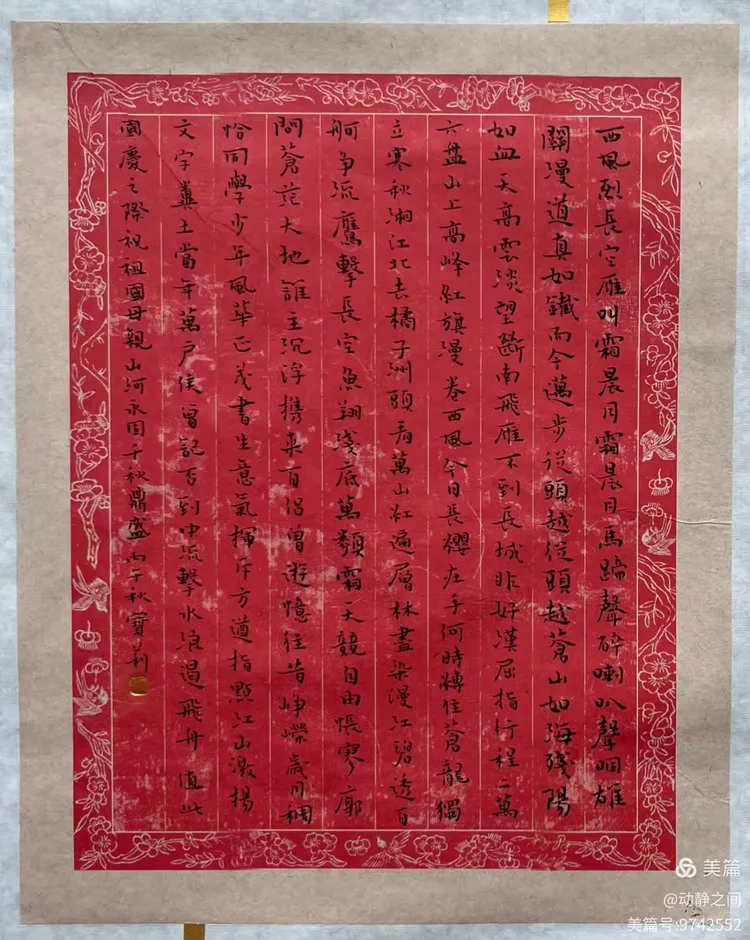 西風烈長空雁叫霜晨月霜晨月馬蹄聲碎喇叭聲咽雄
關漫道真如鐵而今邁步從頭越從頭越蒼山如海殘陽
如血天高雲淡望斷南飛雁不到長城非好漢屈指行程二萬
六盤山上高峰紅旗漫卷西風今日長纓在手何時縛住蒼龍獨
立寒秋湘江北去橘子洲頭看萬山紅遍層林盡染漫江碧透百
舸爭流鷹擊長空魚翔淺底萬類霜天競自由悵寥廓
問蒼茫大地誰主沉浮攜來百侶曾遊憶往昔崢嶸歲月稠
恰同學少年風華正茂書生意氣揮斥方遒指點江山激揚
文字糞土當年萬戶侯曾記否到中流擊水浪遏飛舟值此
國慶之際祝祖國母親山河永固千秋鼎盛丙午秋寶莉
美篇
@动静之间
美篇号:9742552